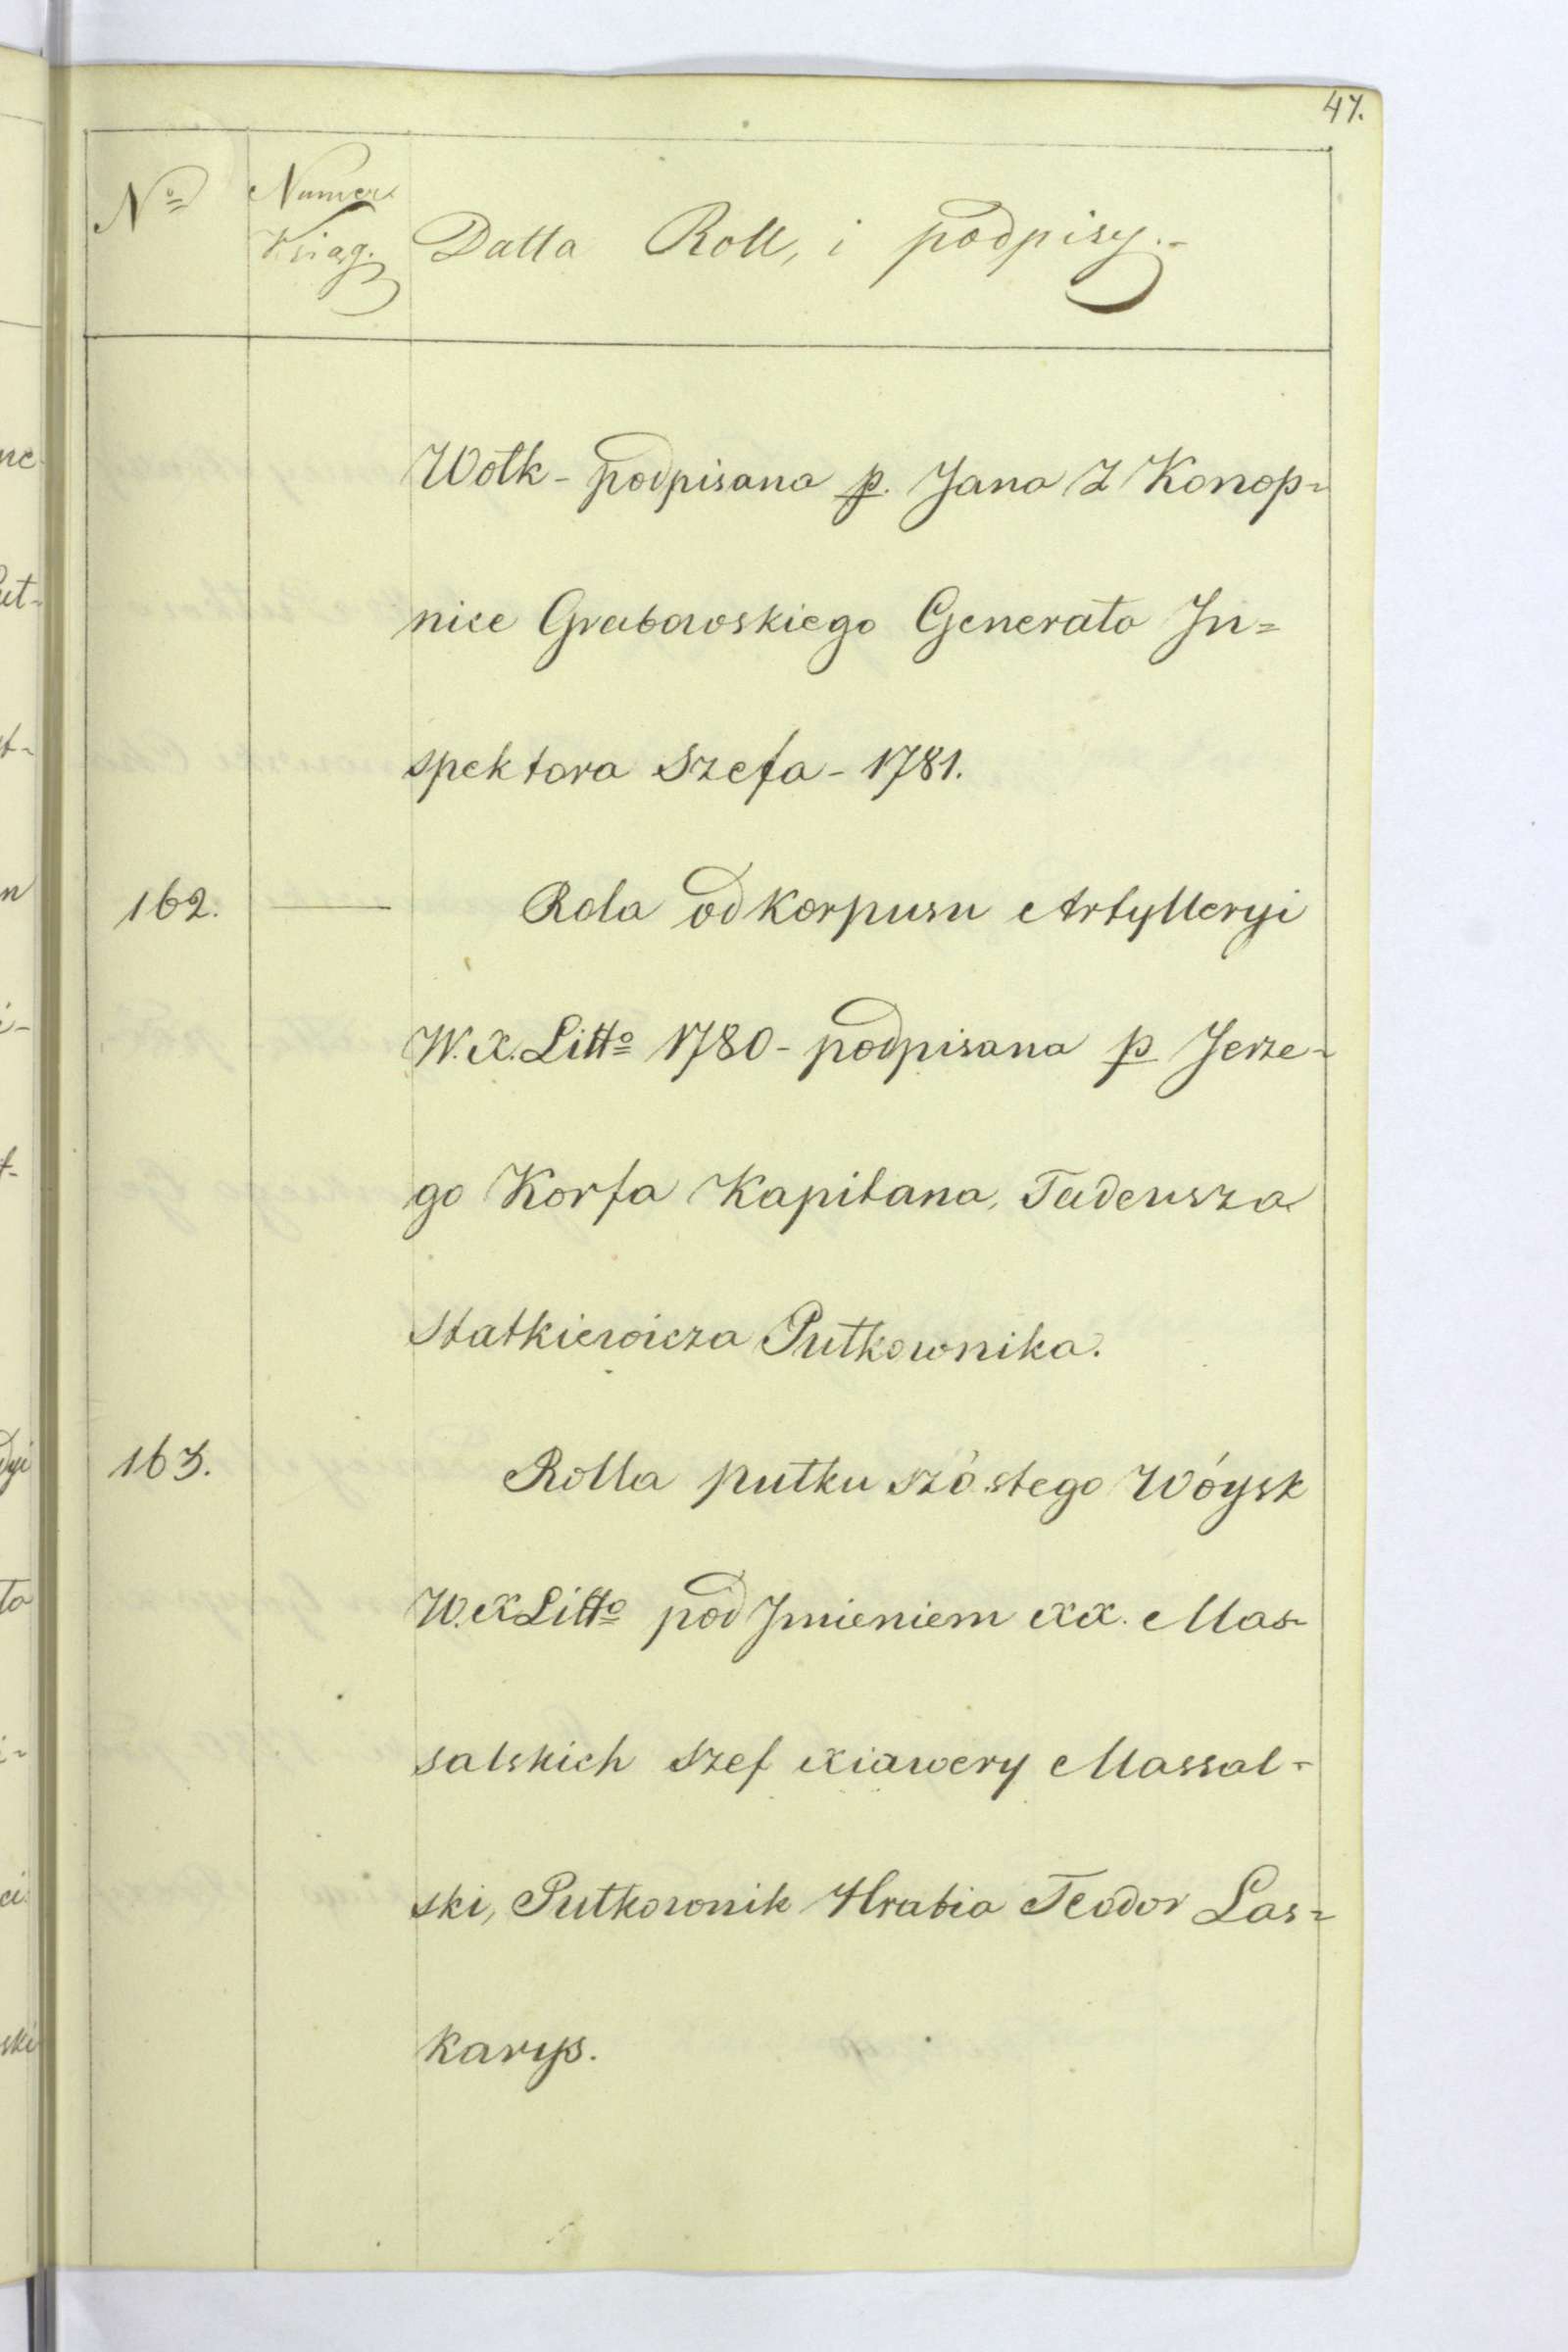 47.
Nº Numer
Ksiąg. Datta Roll, i podpisy.-
Wołk - podpisana p. Jana Z Konop-
nice Grabowskiego Generała In=
spektora Szefa - 1781.
162. — Rola od Korpusu Artylleryi
W.X. Littº 1780 - podpisana p Jerze-
go Korfa Kapitana, Tadeusza
Statkiewicza Pułkownika.
163. Rolla pułku szóstego Wóysk
W.X Littº pod Jmieniem XX. Mas-
salskich Szef Xiawery Massal-
ski, Pułkownik Hrabia Teodor Las=
karys.